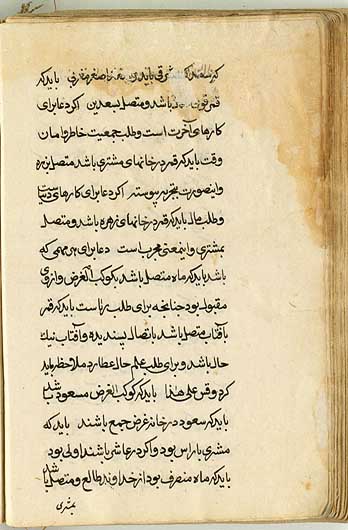 باید که
قمر باشد و متصل بسعدین اگر دعا برای
کارهای آخرت است و طلب جمعیت خاطر و امان
وقت باید که قمر در خانهای مشتری باشد متصل بزهره
و اینصورت بتجربه پیوسته اگر دعا برای کارهای دنیاست
و طلب مال باید که قمر در خانهای زهره باشد و متصل
بمشتری و اینمعنی مجرب است دعا برای هر مهمی که
باشد باید که ماه متصل باشد بکوکب الغرض و از وی
مقبول بود چنانچه برای طلب ریاست باید که قمر
بآفتاب متصل باشد باتصال پسندیده و آفتاب نیک
حال باشد و برای طلب علم حال عطارد ملاحظه باید
کرد و قس علی هذا باید که کوکب الغرض مسعود باشد
باید که سعود در خانه غرض جمع باشند باید که
مشتری با راس بود و اگر در عاشر باشند اولی بود
باید که ماه منصرف بود از خداوند طالع و متصل باشد
بمشتری